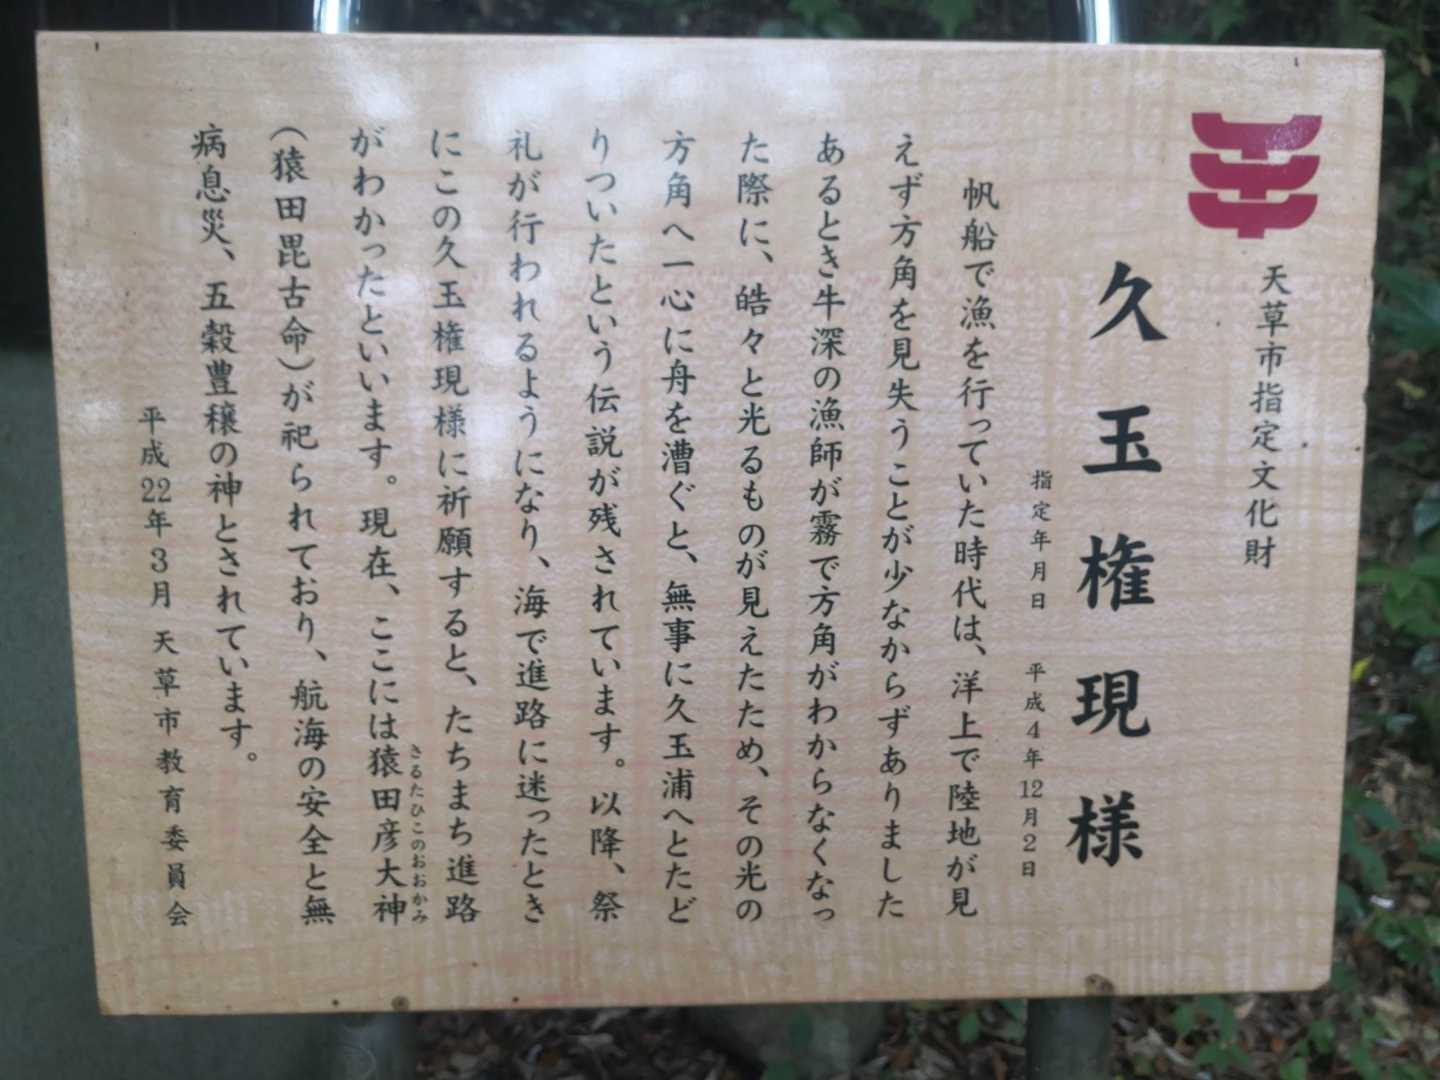 天草市指定文化財
久玉権現様
指定年月日　平成4年12月2日
帆船で漁を行っていた時代は、洋上で陸地が見
えず方角を見失うことが少なからずありました
あるとき牛深の漁師が霧で方角がわからなくなっ
た際に、皓々と光るものが見えたため、その光の
方角へ一心に舟を漕ぐと、無事に久玉浦へとたど
りついたという伝説が残されています。以降、祭
礼が行われるようになり、海で進路に迷ったとき
にこの久玉権現様に祈願すると、たちまち進路
がわかったといいます。現在、ここには猿田彦大神
さるたひこのおおかみ
（猿田毘古命）が祀られており、航海の安全と無
病息災、五穀豊穣の神とされています。
平成22年3月　天草市教育委員会